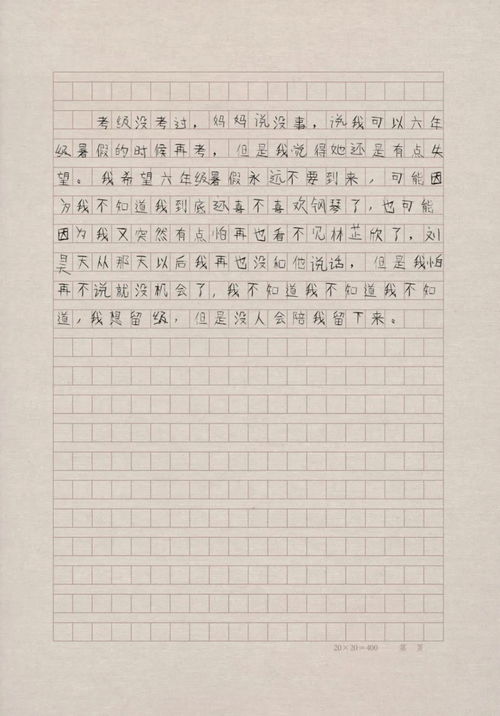 考级没考过，妈妈说没事，说我可以六年
级暑假的时候再考，但是我觉得她还是有点失
望。我希望六年级暑假永远不要到来，可能因
为我不知道我到底还喜不喜欢钢琴了，也可能
因为我又突然有点怕再也看不见林芷欣了，刘
昊天从那天以后我再也没和他说话，但是我怕
再不说就没机会了，我不知道我不知道我不知
道，我想留级，但是没人会陪我留下来。
20×20=400 第 页